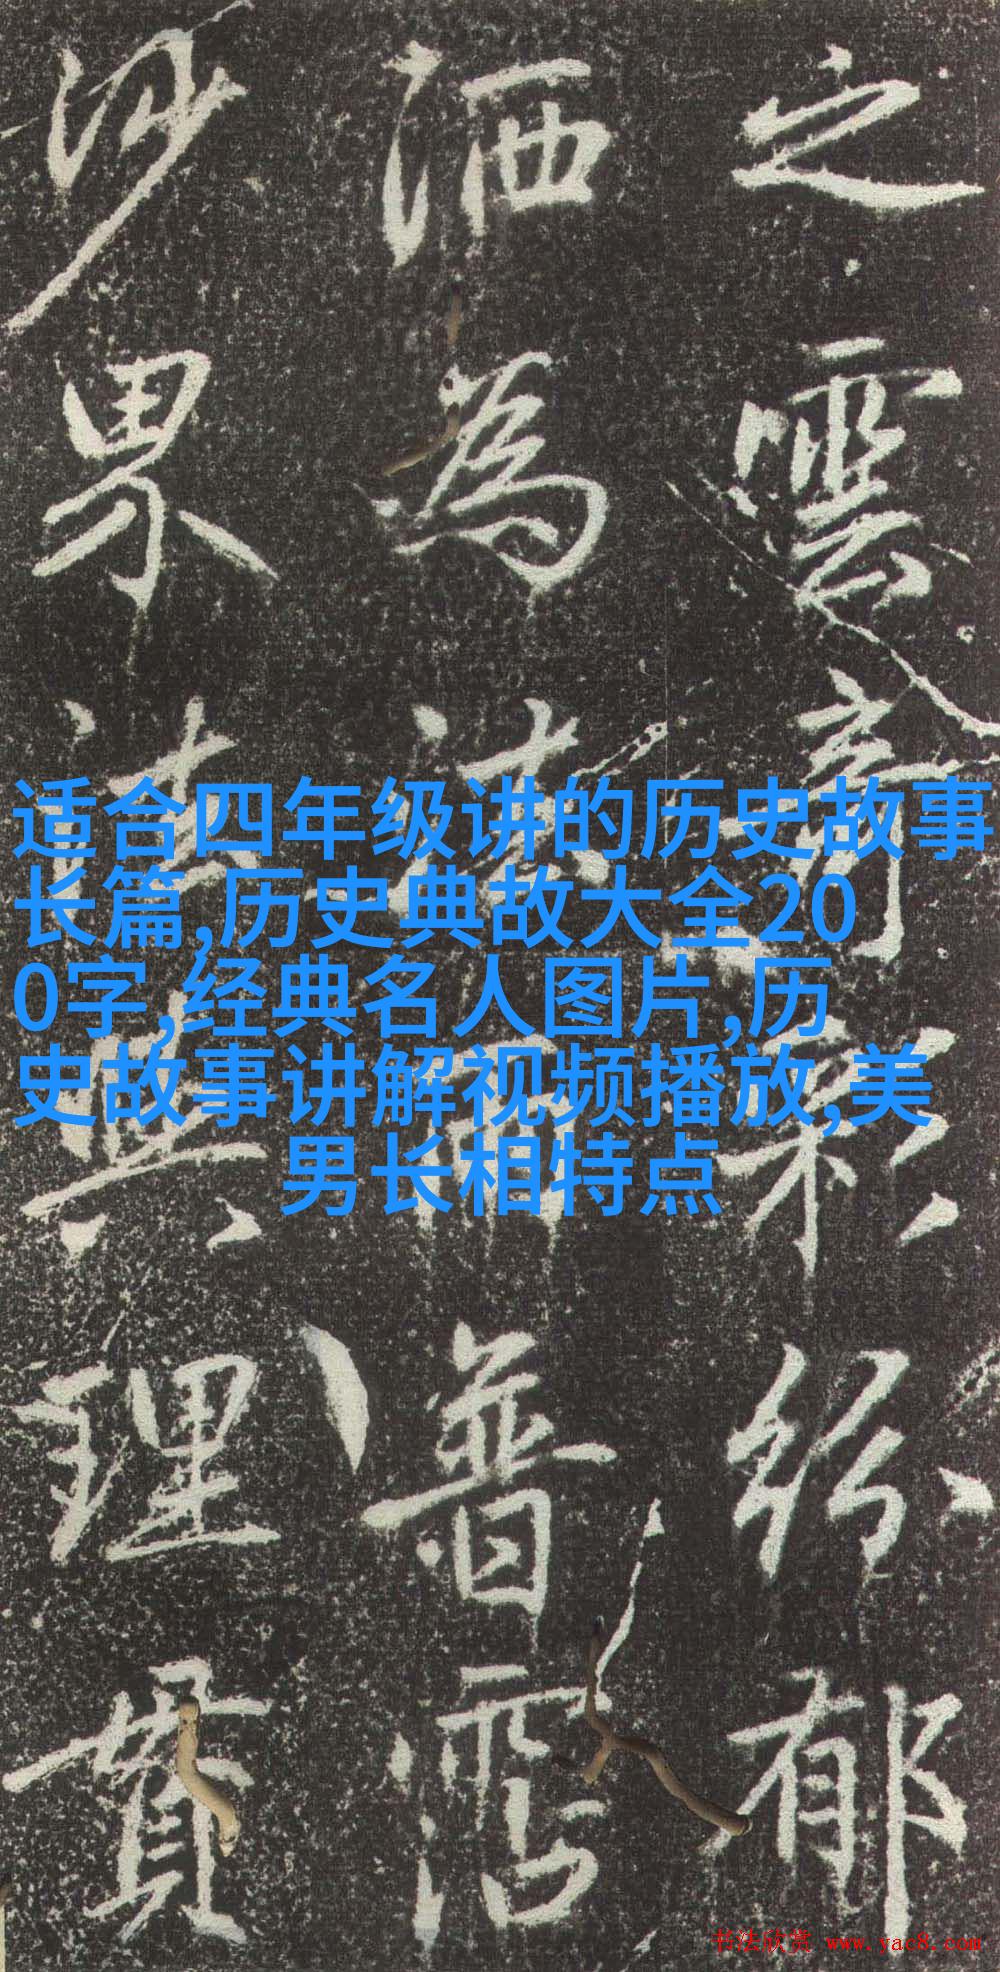 之雲奇彩紛郁
洒為法雨普霑
沙界法與理貫
适合四年级讲的历史故事
长篇,历史典故大全20
0字,经典名人图片,历
史故事讲解视频播放,美
男长相特点
书法欣赏 www.yac8.com